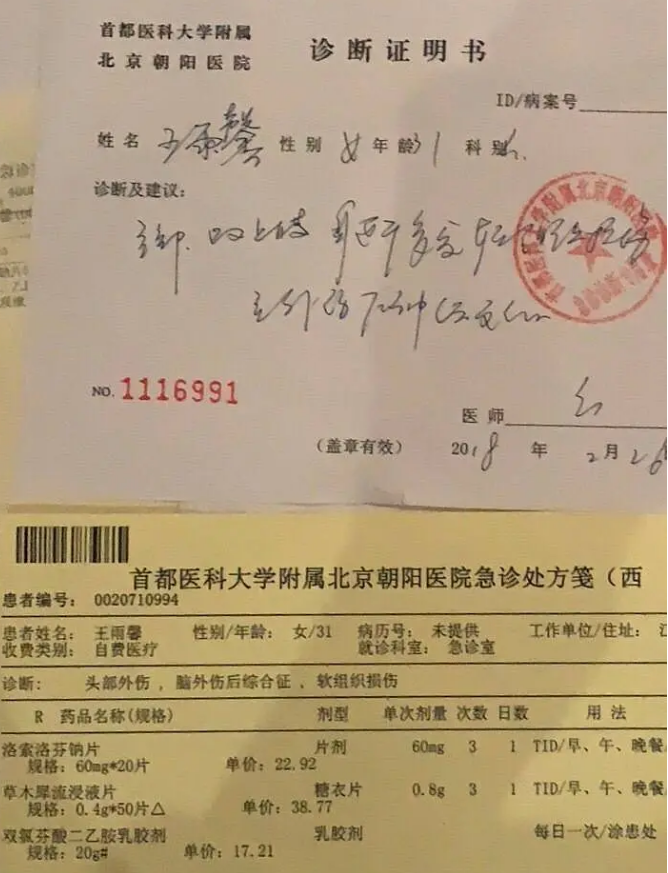 首都医科大学附属
北京朝阳医院
诊断证明书
ID/病案号
姓名 王雨馨 性别 女 年龄 31 科别
诊断及建议:
NO. 1116991
医师
(盖章有效) 2018 年 2月26
首都医科大学附属北京朝阳医院急诊处方笺(西
患者编号: 0020710994
患者姓名: 王雨馨 性别/年龄: 女/31 病历号: 未提供 工作单位/住址: 江
收费类别: 自费医疗 就诊科室: 急诊室
诊断: 头部外伤,脑外伤后综合征,软组织损伤
R 药品名称(规格) 剂型 单次剂量 次数 日数 用法
洛索洛芬钠片 片剂 60mg 3 1 TID/早、午、晚餐
规格: 60mg*20片 单价: 22.92
草木犀流浸液片 糖衣片 0.8g 3 1 TID/早、午、晚餐
规格: 0.4g*50片△ 单价: 38.77
双氯芬酸二乙胺乳胶剂 乳胶剂 每日一次/涂患处
规格: 20g# 单价: 17.21